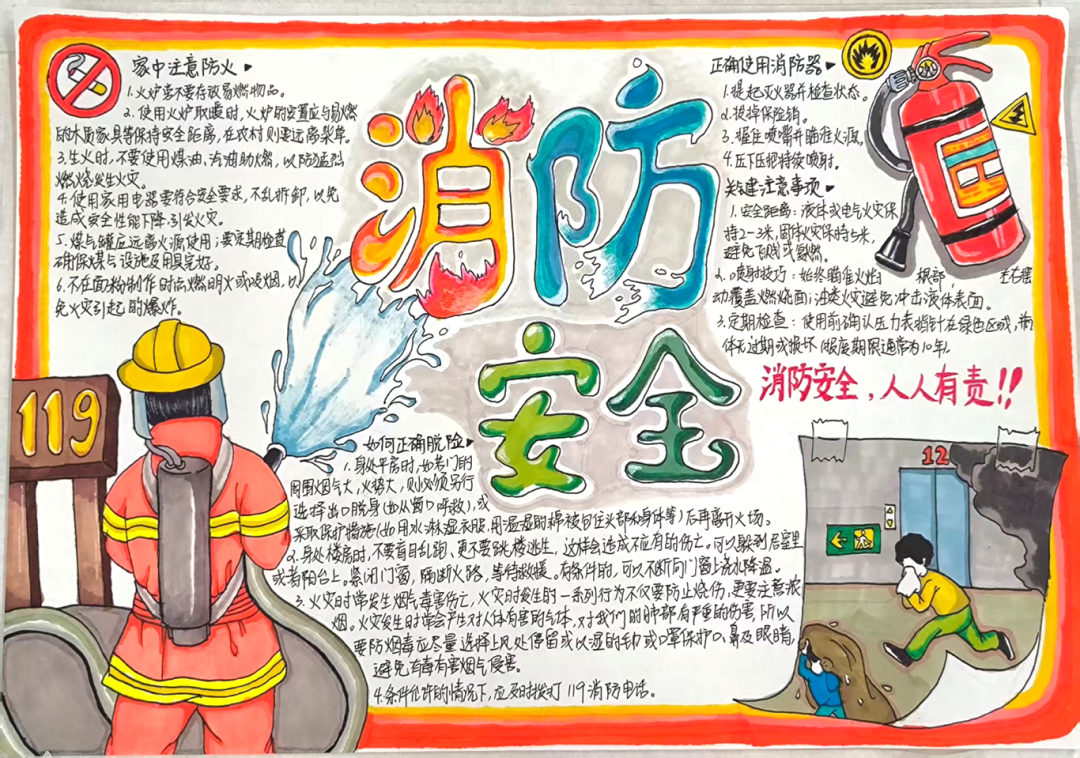 家中注意防火
1.火炉旁不要存放易燃物品。
2.使用火炉取暖时,火炉的安置应与易燃
的木质家具等保持安全距离,在农村则要远离柴草。
3.生火时,不要使用煤油、汽油助燃,以防猛烈
燃烧发生火灾。
4.使用家用电器要符合安全要求,不乱拆卸,以免
造成安全性能下降,引发火灾。
5.煤气罐应远离火源使用;要定期检查
确保煤气设施及用具完好。
6.不在面粉制作时点燃明火或吸烟,以
免火灾引起的爆炸。
消防
安全
正确使用消防器
1.提起灭火器并检查状态。
2.拔掉保险销。
3.握住喷嘴并瞄准火源。
4.压下压把持续喷射。
关键注意事项
1.安全距离:液体或电气火灾保
持2-3米,固体火灾保持5米,
避免飞溅或复燃。
2.喷射技巧:始终瞄准火焰 根部, 左右摆
动覆盖燃烧面;油类火灾避免冲击液体表面。
3.定期检查:使用前确认压力表指针在绿色区域,瓶
体无过期或损坏 年度期限通常为10年)
消防安全,人人有责!!
119
12
如何正确脱险
1.身处平房时,如若门的
周围烟气大,火势大,则必须另行
选择出口脱身(如从窗口呼救),或
采取保护措施(如用水淋湿衣服、用温湿的棉被包住头部和身体等)后再离开火场。
2.身处楼房时,不要盲目乱跑、更不要跳楼逃生,这样会造成不应有的伤亡。可以躲到居室里
或者阳台上。紧闭门窗,隔断火路,等待救援。有条件的,可以不断向门窗上浇水降温。
3.火灾时常发生烟气毒害伤亡,火灾时发生的一系列行为不仅要防止烧伤,更要注意浓
烟。火灾发生时常会产生对人体有害的气体,对于我们的肺部有严重的伤害,所以
要防烟毒应尽量选择上风处停留或以湿的毛巾或口罩保护口、鼻及眼睛,
避免有毒有害烟气侵害。
4.条件允许的情况下,应及时拨打119消防电话。